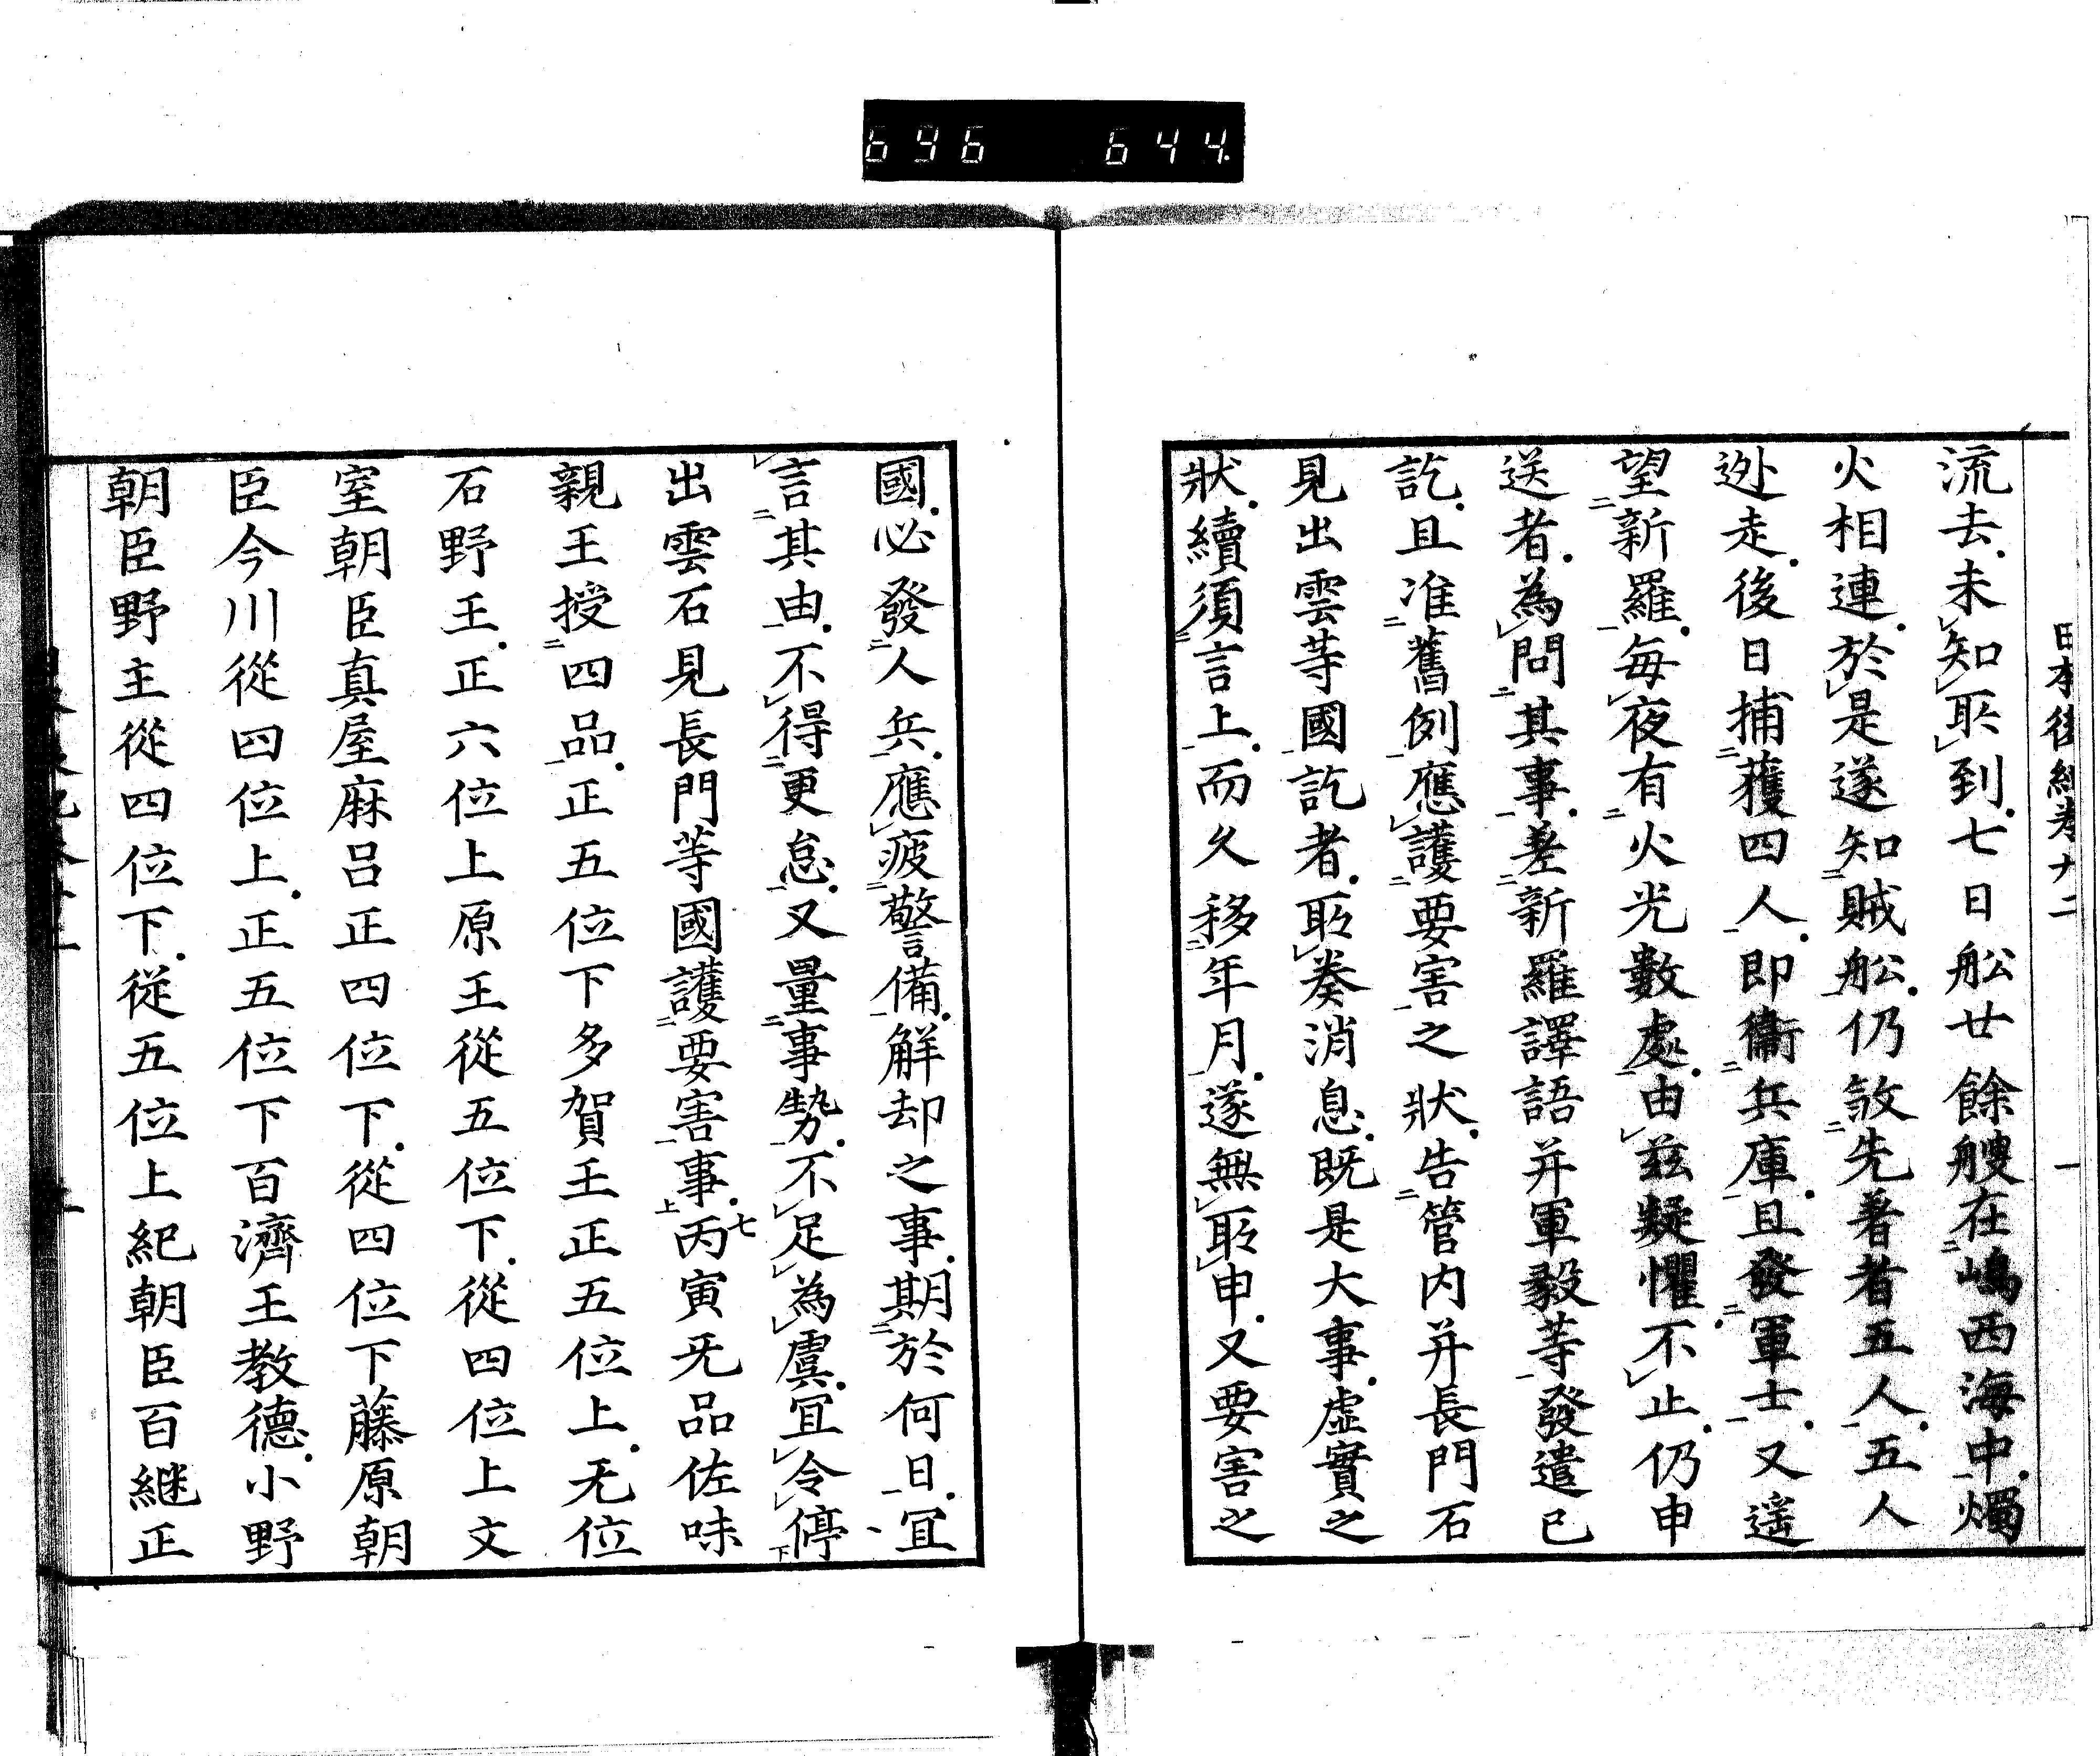 696 644
日本後紀卷廿二 一
流去未知所到七日舩廿餘艘在嶋西海中燭
火相連於是遂知賊舩仍煞先着者五人五人
迯走後日捕獲四人即衞兵庫且發軍士又遥
望新羅每夜有火光數處由茲疑懼不止仍申
送者為問其事差新羅譯語并軍毅等發遣已
訖且准舊例應護要害之狀告管内并長門石
見出雲等國訖者所奏消息既是大事虛實之
狀續須言上而久移年月遂無所申又要害之
國必發人兵應疲警備解却之事期於何日冝
言其由不得更怠又量事勢不足為虞冝令停
出雲石見長門等國護要害事七丙寅无品佐味
親王授四品正五位下多賀王正五位上无位
石野王正六位上原王從五位下從四位上文
室朝臣真屋麻呂正四位下從四位下藤原朝
臣今川從四位上正五位下百濟王教德小野
朝臣野主從四位下從五位上紀朝臣百継正